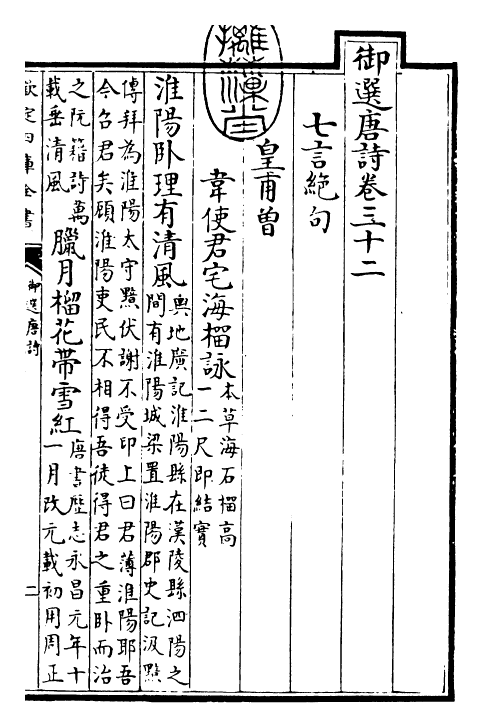 御選唐詩卷三十二
七言絶句
皇甫曽
韋使君宅海榴詠本草海石榴高
一二尺即結實
淮陽卧理有清風輿地廣記淮陽縣在漢陵縣泗陽之
間有淮陽城梁置淮陽郡史記汲黯
傳拜為淮陽太守黯伏謝不受印上曰君薄淮陽耶吾
今召君矣顧淮陽吏民不相得吾徒得君之重卧而治
之阮籍詩萬
載垂清風
臘月榴花帶雪紅唐書歴志永昌元年十
一月改元載初用周正
欽定四庫全書
御選唐詩